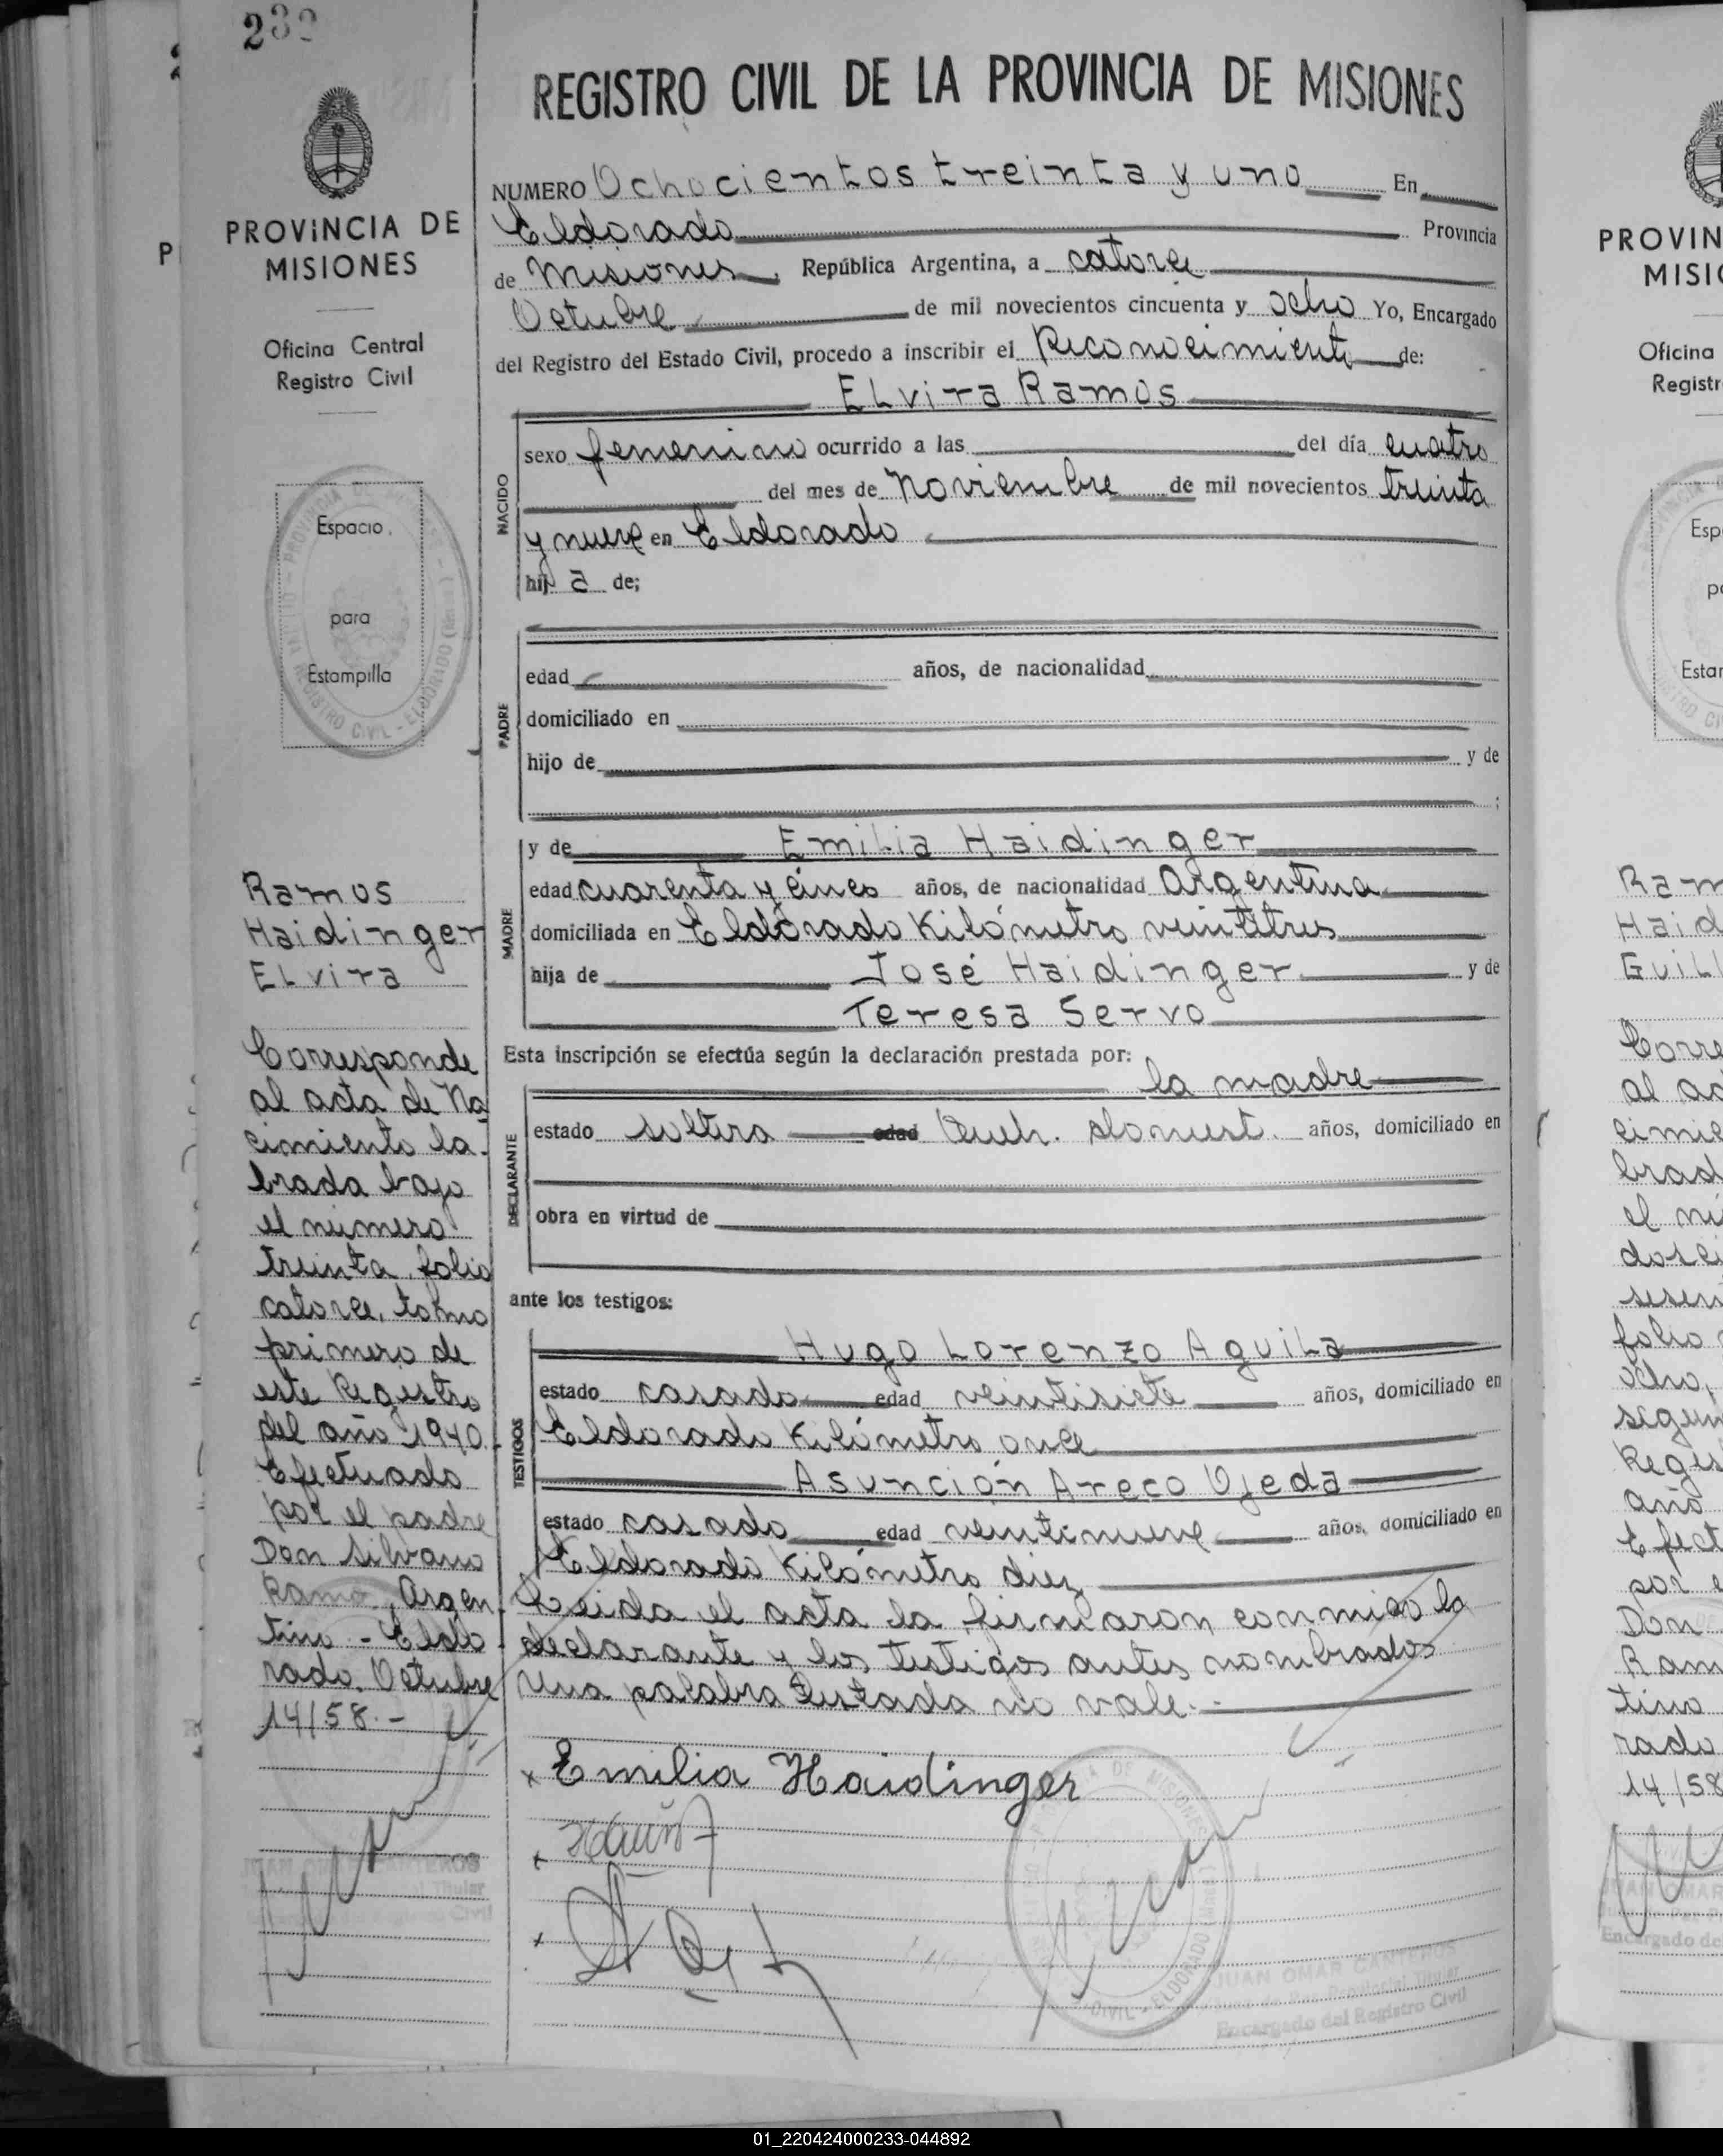 232
REGISTRO CIVIL DE LA PROVINCIA DE MISIONES
PROVINCIA DE
MISIONES
Oficina Central
Registro Civil
Espacio
para
Estampilla
NUMERO Ochocientos treinta y uno En
Eldorado Provincia
de Misiones, República Argentina, a catorce
Octubre de mil novecientos cincuenta y ocho Yo, Encargado
del Registro del Estado Civil, procedo a inscribir el Reconocimiento de:
Elvira Ramos
NACIDO
sexo femenino ocurrido a las del día cuatro
del mes de Noviembre de mil novecientos treinta
y nueve en Eldorado
hij a de;
PADRE
edad años, de nacionalidad
domiciliado en
hijo de y de
;
MADRE
y de Emilia Haidinger
edad cuarenta y cinco años, de nacionalidad Argentina
domiciliada en Eldorado Kilómetro veintitres
hija de José Haidinger y de
Teresa Servo
Esta inscripción se efectúa según la declaración prestada por:
la madre
DECLARANTE
estado soltera edad años, domiciliado en
obra en virtud de
ante los testigos:
TESTIGOS
Hugo Lorenzo Aguila
estado casado edad veintisiete años, domiciliado en
Eldorado Kilómetro once
Asunción Areco Ojeda
estado casado edad veintinueve años, domiciliado en
Eldorado Kilómetro diez
Leida el acta la firmaron conmigo la
declarante y los testigos antes nombrados
Una palabra testada no vale.-
Emilia Haidinger
Ramos
Haidinger
Elvira
Corresponde
al acta de Na
cimiento la-
brada bajo
el número
treinta, folio
catorce, tomo
primero de
este Registro
del año 1940.
Efectuado
por el padre
Don Silvano
Ramo, Argen
tino - Eldo
rado, Octubre
14/58.-
JUAN OMAR CANTEROS
Encargado del Registro Civil
PROVIN
MISIO
Oficina
Registr
01_220424000233-044892